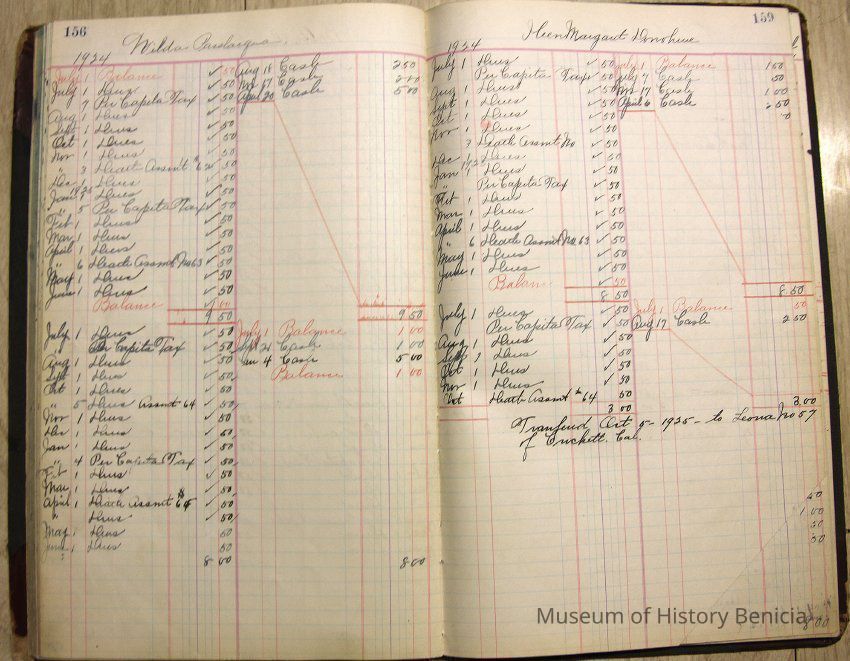 156
1924
July 1 Balance ✓ 50 Aug 18 Cash 250
July 1 Dues ✓ 50 17 Cash 200
" 7 Per Capita Tax ✓ 50 April 20 Cash 500
Aug 1 Dues ✓ 50
Sept 1 Dues ✓ 50
Oct 1 Dues ✓ 50
Nov 1 Dues ✓ 50
" 3 Death Assm't 50
Dec 1 Dues ✓ 50
1925
Jan 1 Dues ✓ 50
" 5 Per Capita Tax ✓ 50
Feb 1 Dues ✓ 50
Mar 1 Dues ✓ 50
April 1 Dues ✓ 50
" 6 Death Assmt No 63 ✓ 50
May 1 Dues ✓ 50
June 1 Dues ✓ 50
Balance 1 00
9 50 9 50
July 1 Dues ✓ 50 July 1 Balance 1 00
Per Capita Tax ✓ 50 Sept 21 Cash 1 00
Aug 1 Dues ✓ 50 Jan 4 Cash 5 00
Sept 1 Dues ✓ 50 Balance 1 00
Oct 1 Dues ✓ 50
5 Dues Assmt 64 ✓ 50
Nov 1 Dues ✓ 50
Dec 1 Dues ✓ 50
Jan 1 Dues ✓ 50
" 4 Per Capita Tax ✓ 50
Feb 1 Dues ✓ 50
Mar 1 Dues ✓ 50
April 1 Death Assmt ✓ 50
" Dues ✓ 50
May 1 Dues 50
June 1 Dues 50
8 00 8 00
159
1924 Margaret Donohue
July 1 Dues ✓ 50 July 1 Balance 1 00
Per Capita Tax ✓ 50 July 7 Cash 50
Aug 1 Dues ✓ 50 17 Cash 1 00
Sept 1 Dues ✓ 50 April 6 Cash
Oct 1 Dues ✓ 50
Nov 1 Dues ✓ 50
3 Death Assmt No ✓ 50
Dec 1 Dues ✓ 50
Jan 1 Dues ✓ 50
" Per Capita Tax ✓ 50
Feb 1 Dues ✓ 50
Mar 1 Dues ✓ 50
April 1 Dues ✓ 50
" 6 Death Assmt No 63 ✓ 50
May 1 Dues ✓ 50
June 1 Dues ✓ 50
Balance ✓ 50
8 50 8 50
July 1 Dues ✓ 50 July 1 Balance 50
Per Capita Tax ✓ 50 Aug 17 Cash 2 50
Aug 1 Dues ✓ 50
Sept 1 Dues ✓ 50
Oct 1 Dues ✓ 50
Nov 1 Dues ✓ 50
Oct Death Assmt # 64 50
3 00 3.00
Transferred Oct 5 - 1925 - to Leona No 57
of Crockett, Cal.
50
1 00
50
50
8 00
Museum of History Benicia